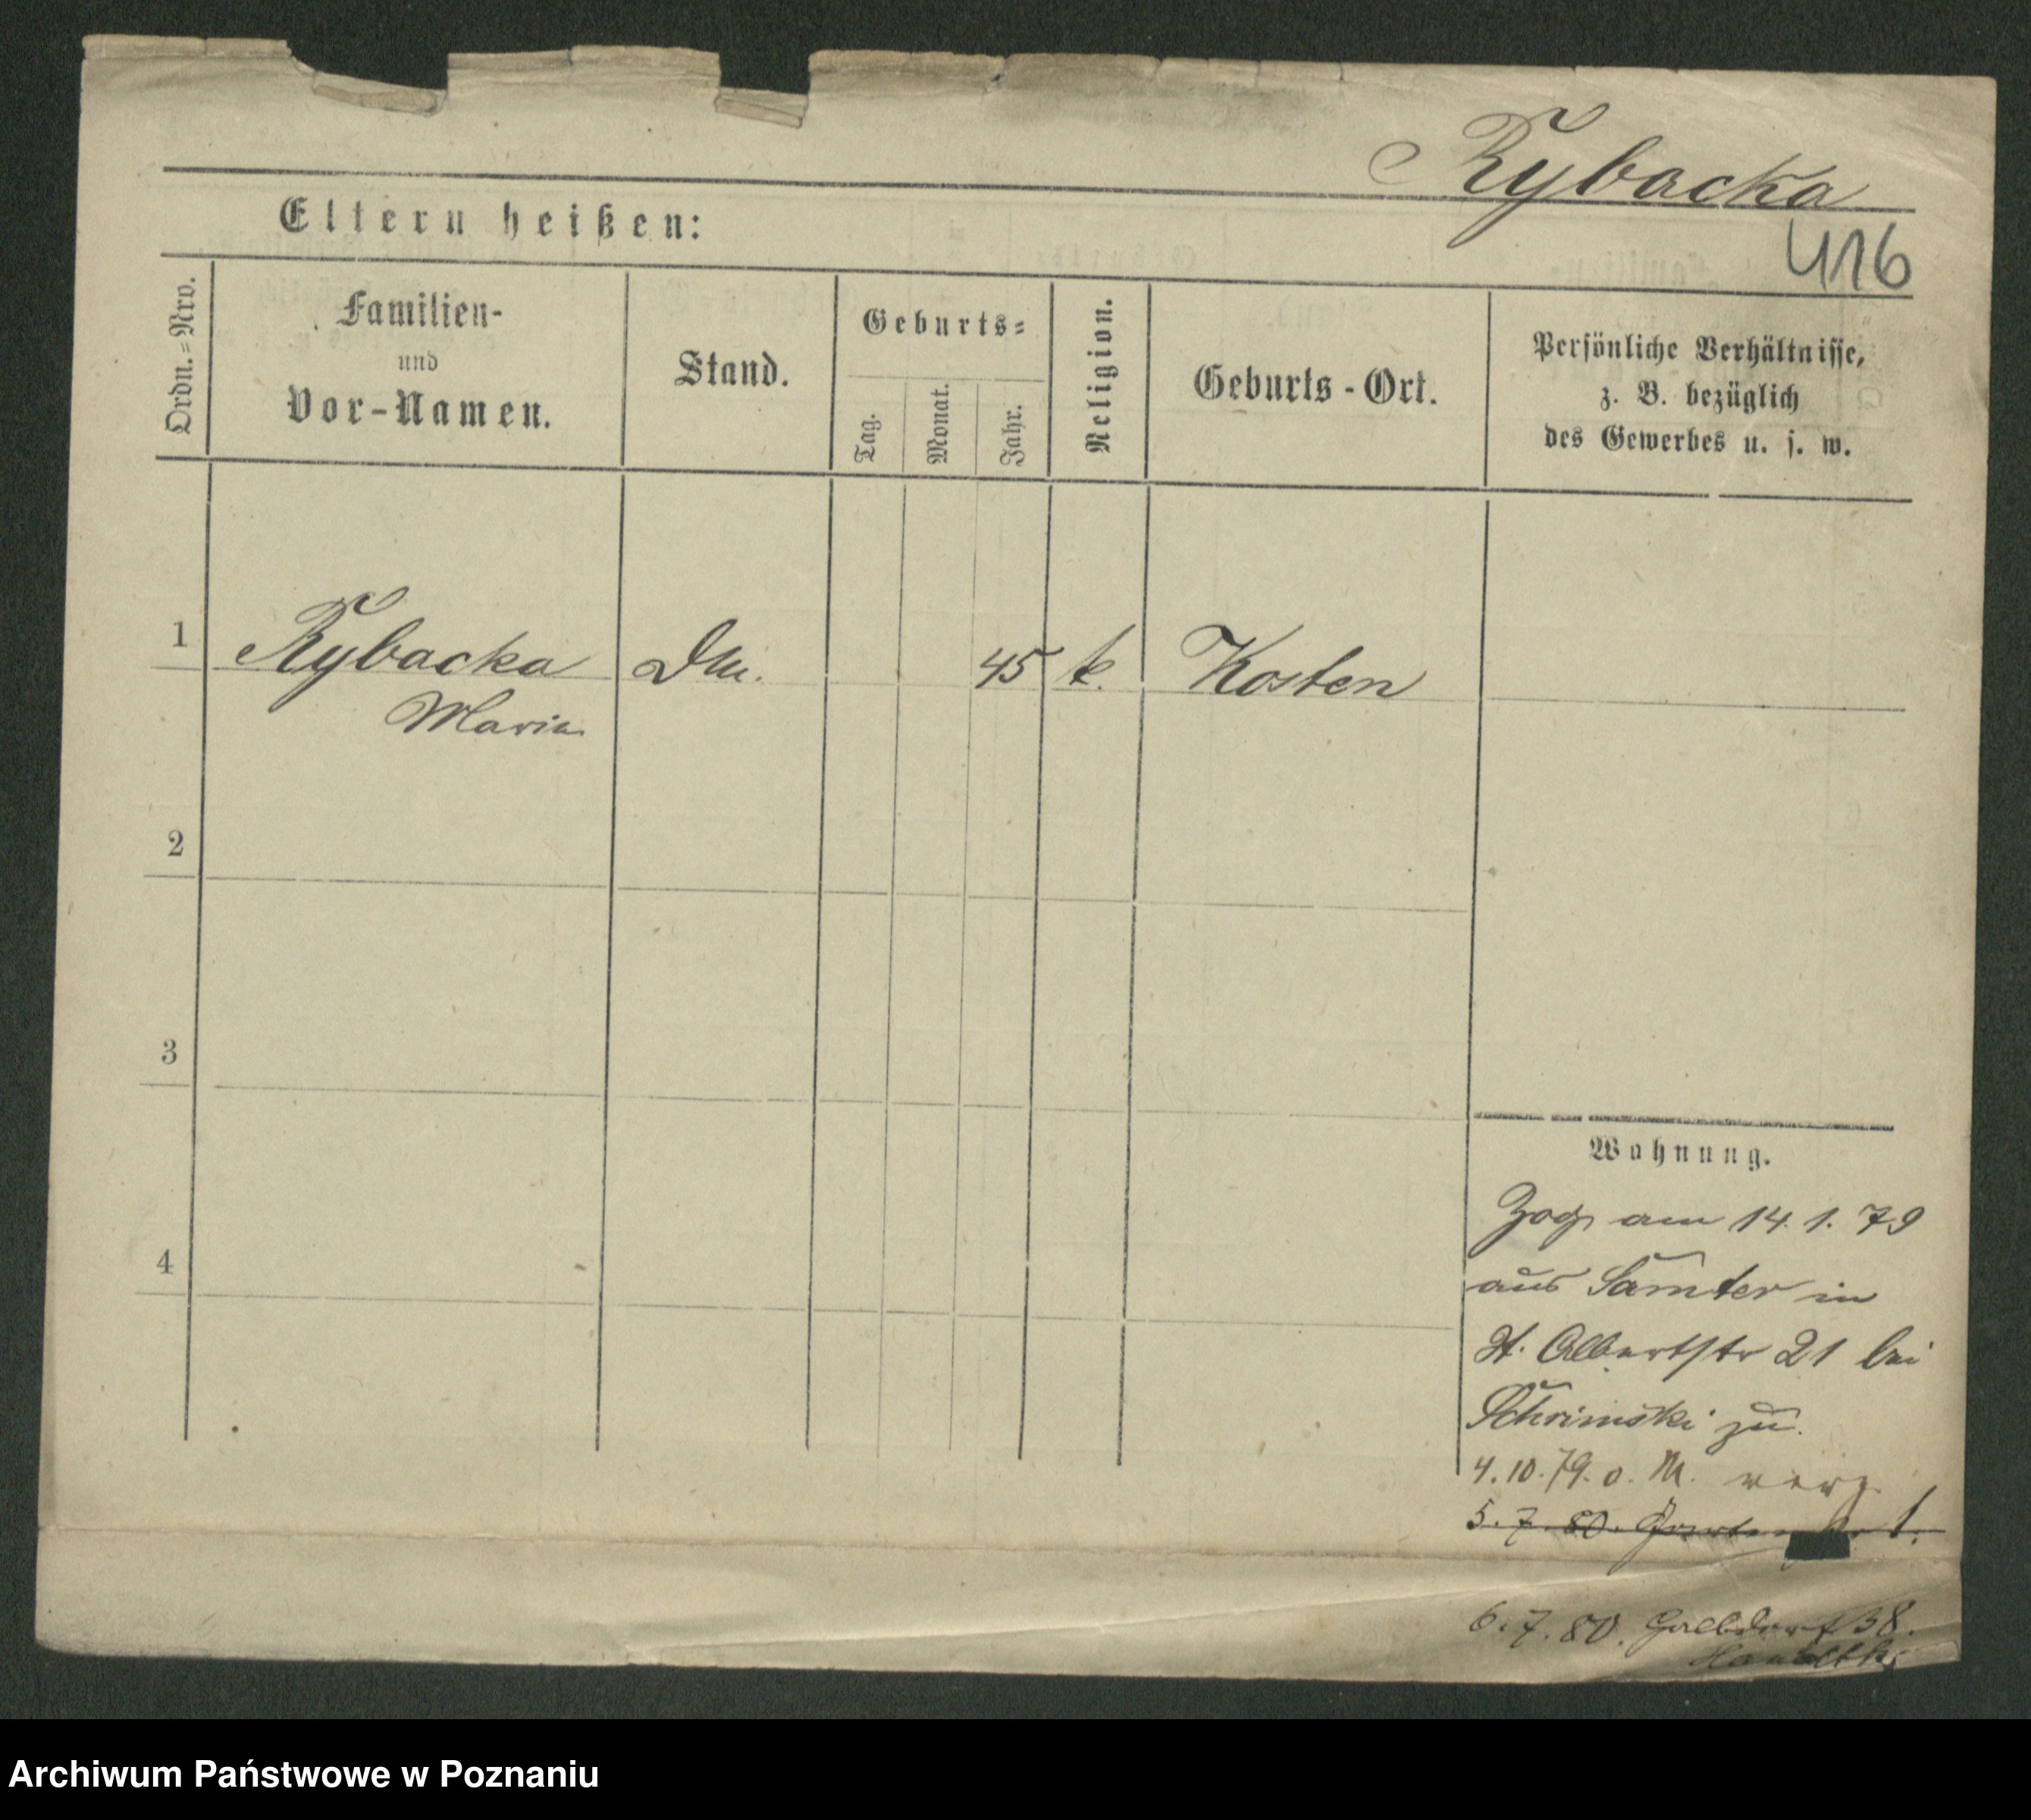 Rybacka
416
Eltern heißen:
Ordn.=Nro.
Familien-
und
Vor-Namen.
Stand.
Geburts=
Tag.
Monat.
Jahr.
Religion.
Geburts-Ort.
Persönliche Verhältnisse,
z. B. bezüglich
des Gewerbes u. s. w.
1 Rybacka 45 k. Kosten
Maria
2
3
4
Wohnung.
Zog am 14. 1. 79
aus Samter in
St. Albertstr 21 bei
Schrimski zu.
4. 10. 79. o. M. verz.
5. 7. 80. 1.
6. 7. 80. Halbdorf 38.
Archiwum Państwowe w Poznaniu